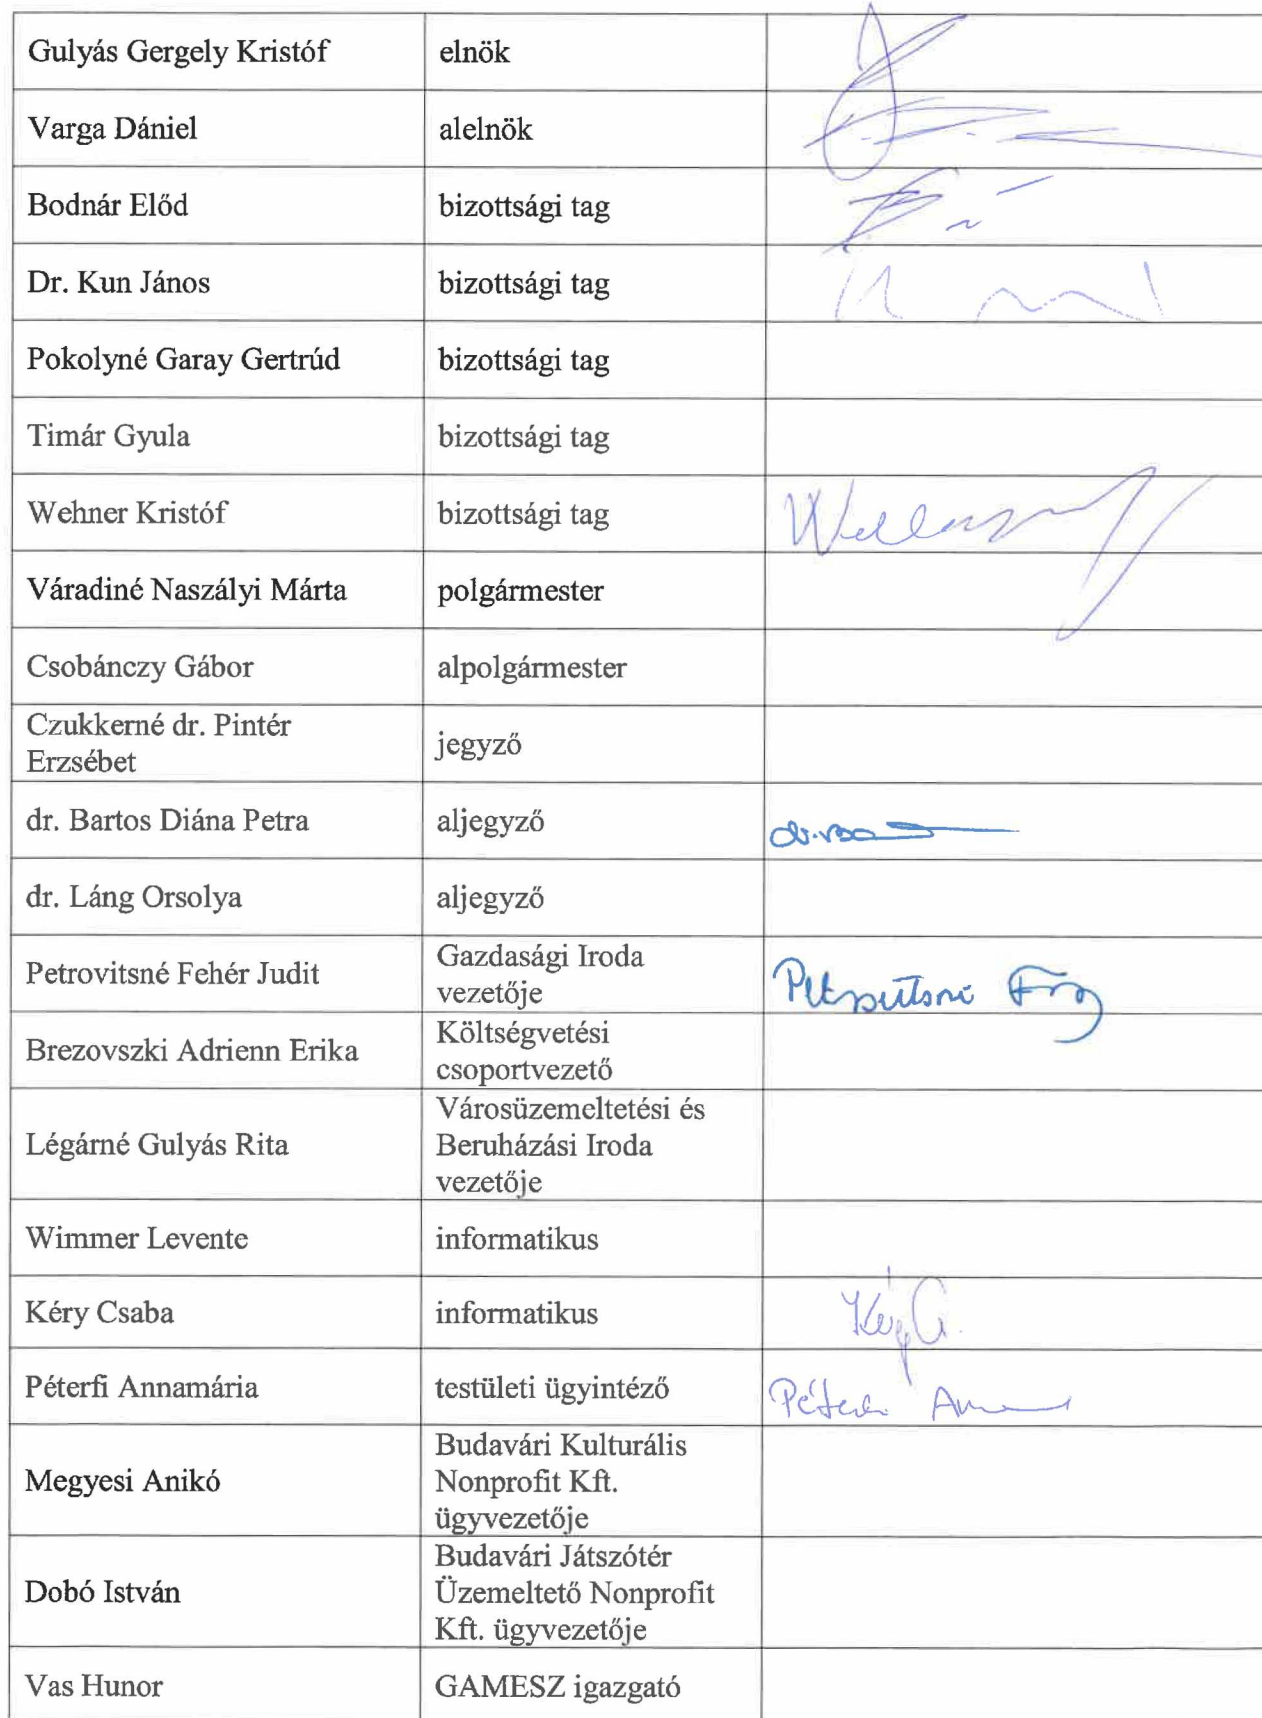 Gulyás Gergely Kristóf elnök
Varga Dániel alelnök
Bodnár Előd bizottsági tag
Dr. Kun János bizottsági tag
Pokolyné Garay Gertrúd bizottsági tag
Timár Gyula bizottsági tag
Wehner Kristóf bizottsági tag
Váradiné Naszályi Márta polgármester
Csobánczy Gábor alpolgármester
Czukkerné dr. Pintér
Erzsébet
jegyző
dr. Bartos Diána Petra aljegyző
dr. Láng Orsolya aljegyző
Petrovitsné Fehér Judit
Gazdasági Iroda
vezetője
Brezovszki Adrienn Erika
Költségvetési
csoportvezető
Légárné Gulyás Rita
Városüzemeltetési és
Beruházási Iroda
vezetője
Wimmer Levente informatikus
Kéry Csaba informatikus
Péterfi Annamária testületi ügyintéző
Megyesi Anikó
Budavári Kulturális
Nonprofit Kft.
ügyvezetője
Dobó István
Budavári Játszótér
Üzemeltető Nonprofit
Kft. ügyvezetője
Vas Hunor GAMESZ igazgató